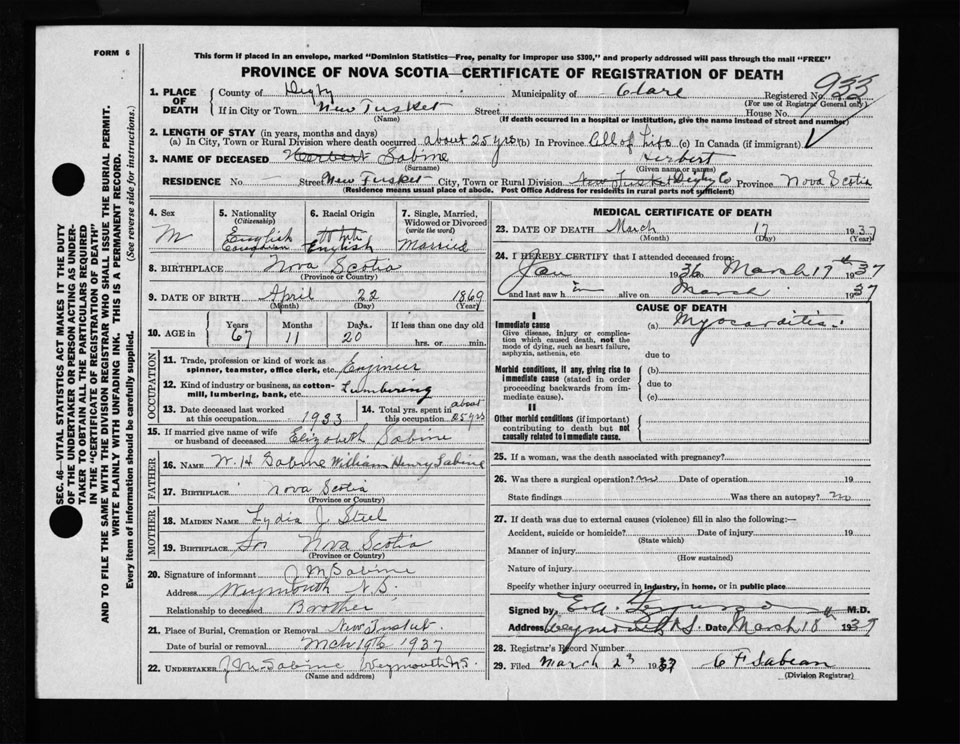 FORM 6
This form if placed in an envelope, marked "Dominion Statistics—Free, penalty for improper use $300," and properly addressed will pass through the mail "FREE"
PROVINCE OF NOVA SCOTIA—CERTIFICATE OF REGISTRATION OF DEATH
SEC. 46—VITAL STATISTICS ACT MAKES IT THE DUTY
OF THE UNDERTAKER OR PERSON ACTING AS UNDER-
TAKER TO OBTAIN ALL THE PARTICULARS REQUIRED
IN THE "CERTIFICATE OF REGISTRATION OF DEATH"
AND TO FILE THE SAME WITH THE DIVISION REGISTRAR WHO SHALL ISSUE THE BURIAL PERMIT.
WRITE PLAINLY WITH UNFADING INK. THIS IS A PERMANENT RECORD.
Every item of information should be carefully supplied. (See reverse side for instructions.)
1. PLACE OF DEATH County of Digby Municipality of Clare Registered No. 933
(For use of Registrar General only)
If in City or Town New Tusket Street House No.
(Name) (If death occurred in a hospital or institution, give the name instead of street and number)
2. LENGTH OF STAY (in years, months and days)
(a) In City, Town or Rural Division where death occurred about 25 yrs (b) In Province All of Life (c) In Canada (if immigrant)
3. NAME OF DECEASED Herbert Sabine Herbert
(Surname) (Given name or names)
RESIDENCE No. Street New Tusket City, Town or Rural Division New Tusket Digby Co Province Nova Scotia
(Residence means usual place of abode. Post Office Address for residents in rural parts not sufficient)
4. Sex M
5. Nationality (Citizenship) English Canadian
6. Racial Origin White English
7. Single, Married, Widowed or Divorced (write the word) Married
8. BIRTHPLACE Nova Scotia
(Province or Country)
9. DATE OF BIRTH April 22 1869
(Month) (Day) (Year)
10. AGE in Years 67 Months 11 Days 20 If less than one day old hrs. or min.
OCCUPATION
11. Trade, profession or kind of work as spinner, teamster, office clerk, etc. Engineer
12. Kind of industry or business, as cotton-mill, lumbering, bank, etc. Lumbering
13. Date deceased last worked at this occupation 1933
14. Total yrs. spent in this occupation about 25 yrs
15. If married give name of wife or husband of deceased Elizabeth Sabine
FATHER
16. NAME W. H. Sabine William Henry Sabine
17. BIRTHPLACE Nova Scotia
(Province or Country)
MOTHER
18. MAIDEN NAME Lydia J. Steel
19. BIRTHPLACE Nova Scotia
(Province or Country)
20. Signature of informant J M Sabine
Address Weymouth N.S.
Relationship to deceased Brother
21. Place of Burial, Cremation or Removal New Tusket.
Date of burial or removal Mch 19th 1937
22. UNDERTAKER J M Sabine Weymouth N.S.
(Name and address)
MEDICAL CERTIFICATE OF DEATH
23. DATE OF DEATH March 17 1937
(Month) (Day) (Year)
24. I HEREBY CERTIFY that I attended deceased from:
Jan 1936 March 17th 1937
and last saw h im alive on March 1937
CAUSE OF DEATH
I
Immediate cause (a) Myocarditis
Give disease, injury or complication which caused death, not the mode of dying, such as heart failure, asphyxia, asthenia, etc due to
Morbid conditions, if any, giving rise to immediate cause (stated in order proceeding backwards from immediate cause). (b)
due to
(c)
II
Other morbid conditions (if important) contributing to death but not causally related to immediate cause.
25. If a woman, was the death associated with pregnancy?
26. Was there a surgical operation? no Date of operation 19
State findings Was there an autopsy? no
27. If death was due to external causes (violence) fill in also the following:—
Accident, suicide or homicide? Date of injury 19
(State which)
Manner of injury
(How sustained)
Nature of injury
Specify whether injury occurred in industry, in home, or in public place
Signed by E. A. Ferguson M.D.
Address Weymouth N.S. Date March 18th 1937
28. Registrar's Record Number
29. Filed March 23 1937 C F Sabean
(Division Registrar)